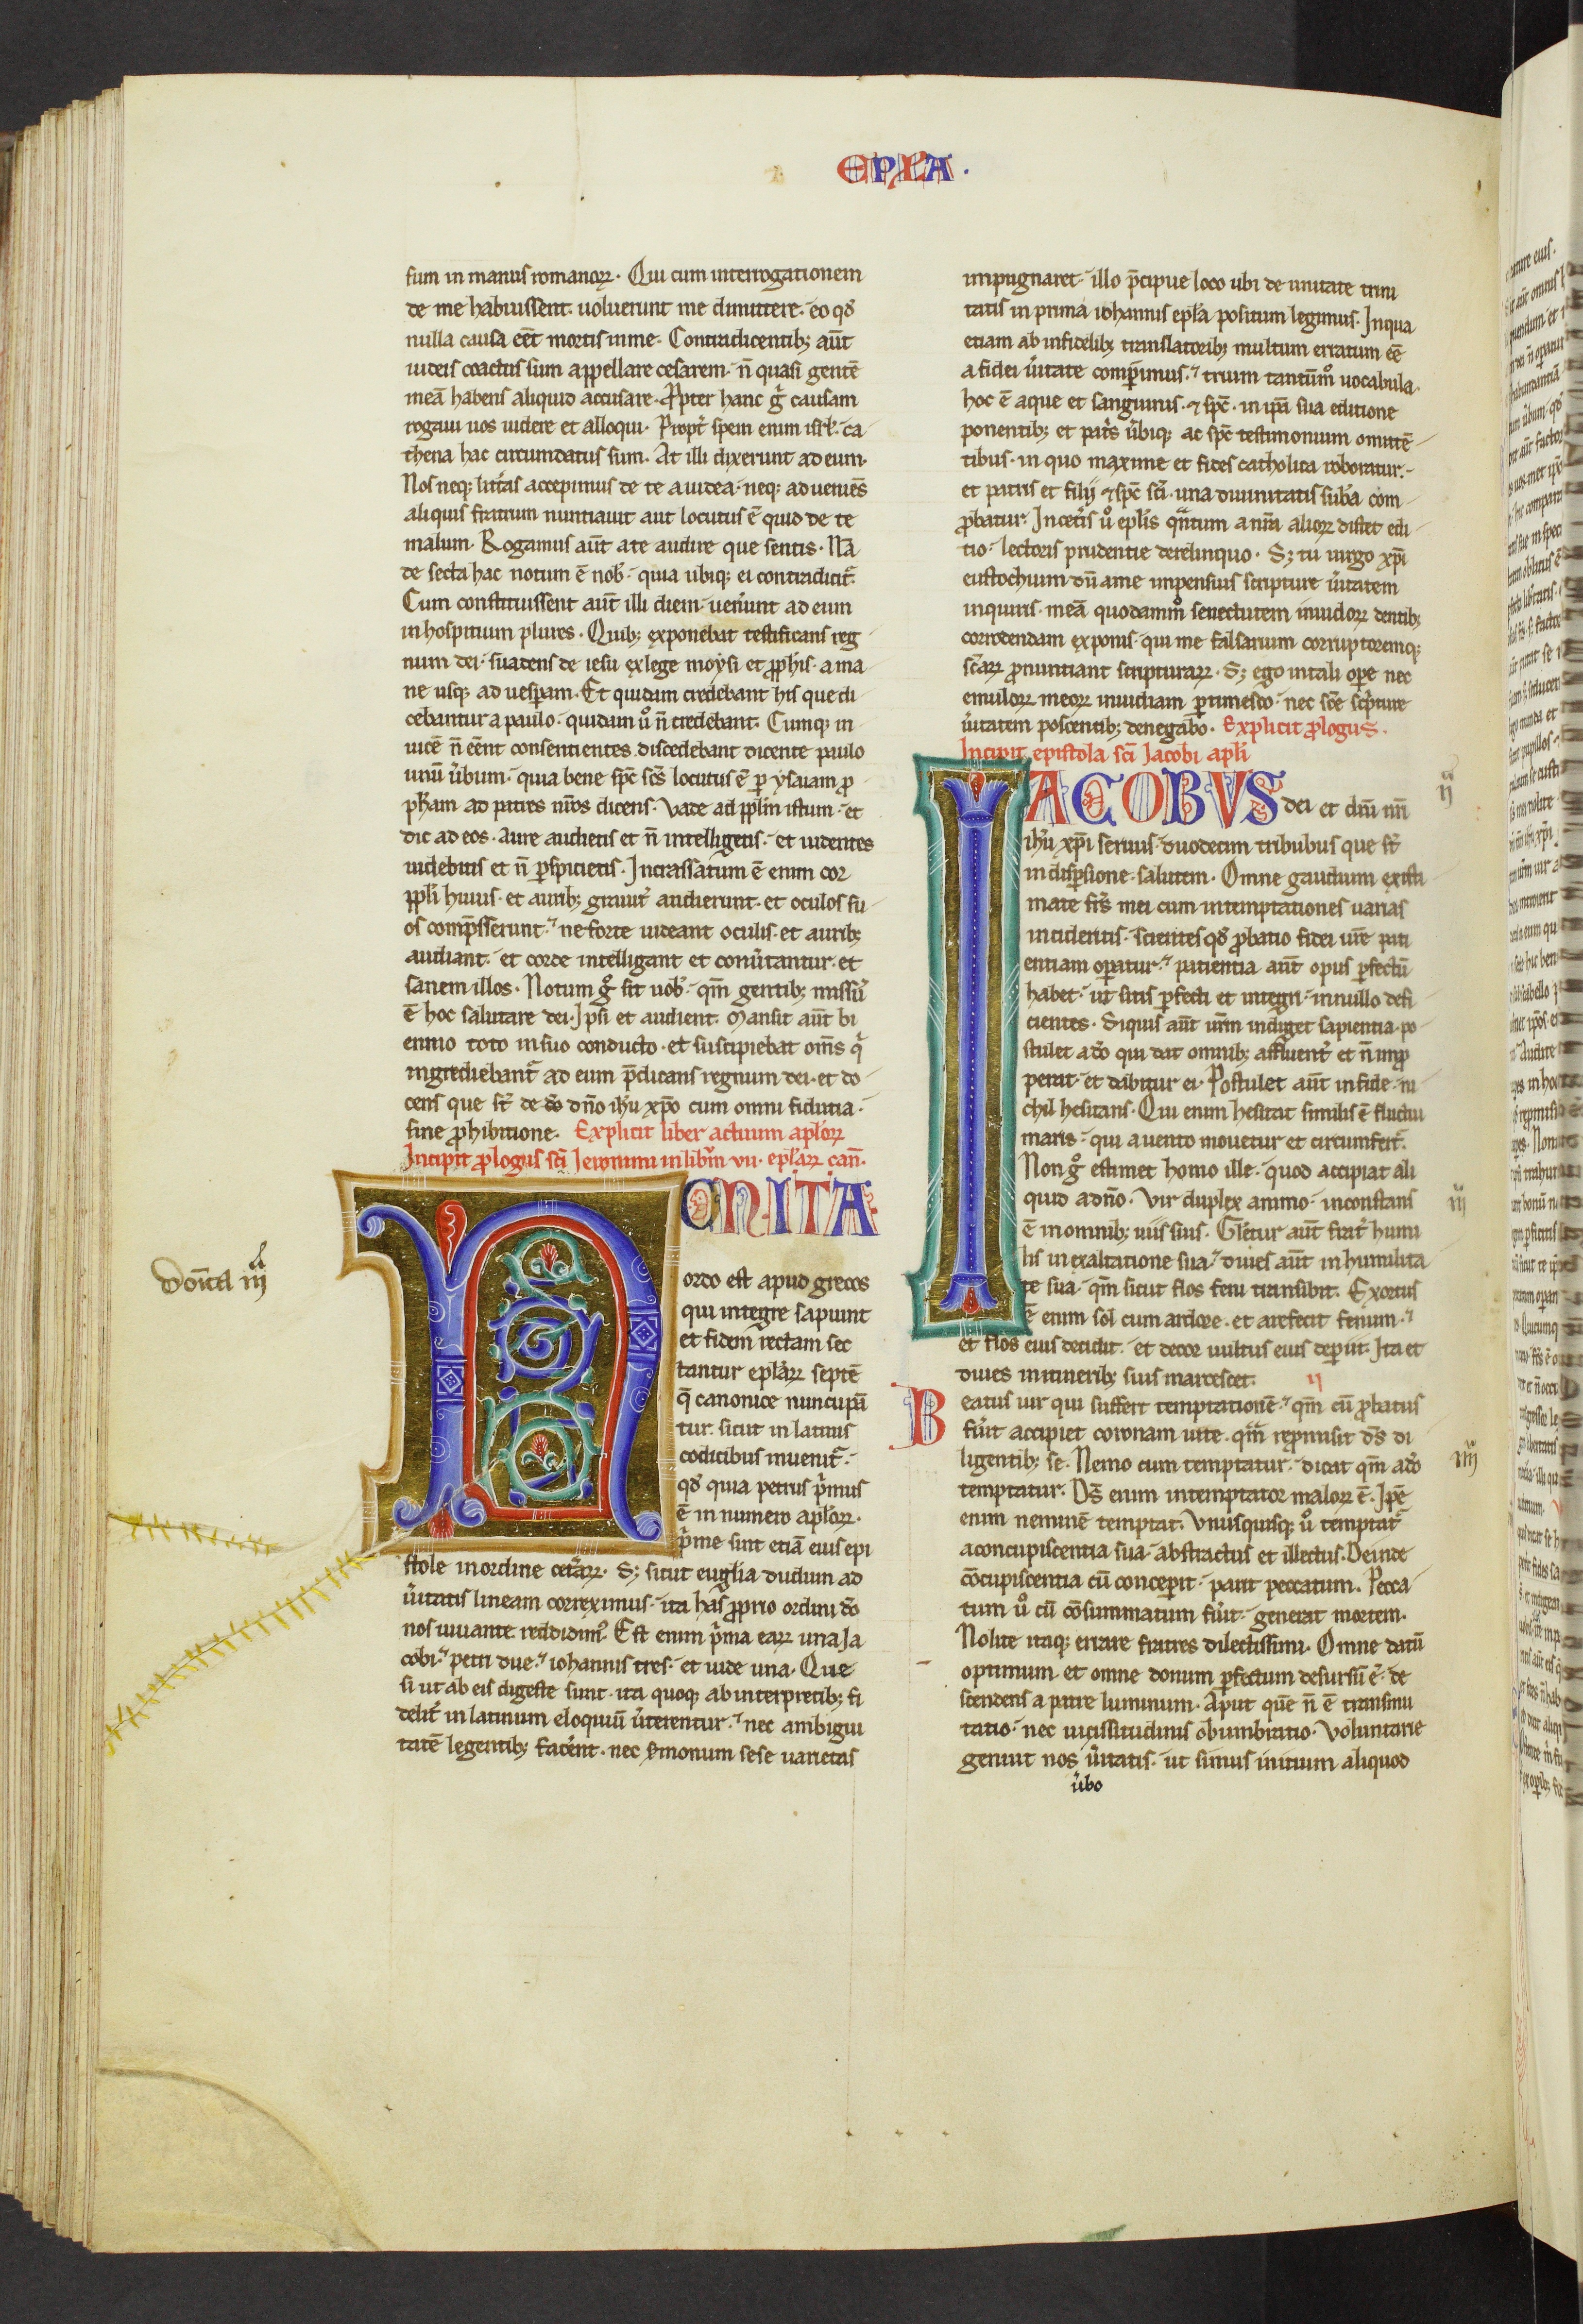 EPLA.
sum in manus romanoꝝ. Qui cum interrogationem
de me habuissent. uoluerunt me dimittere. eo qđ
nulla causa eēt mortis in me. Contradicentibꝫ aūt
iudeis coactus sum appellare cesarem. n̄ quasi gentē
meā habens aliquid accusare. Ꝓpter hanc g̊ causam
rogaui uos uidere et alloqui. Propt̄ spem enim isrł. ca-
thena hac circumdatus sum. At illi dixerunt ad eum.
Nos neqꝫ litt̄as accepimus de te a iudea. neqꝫ adueniēs
aliquis fratrum nuntiauit aut locutus ē quid de te
malum. Rogamus aūt a te audire que sentis. Nā
de secta hac notum ē nob̄. quia ubiqꝫ ei contradicit᷑.
Cum constituissent aūt illi diem. ueñunt ad eum
in hospitium plures. Quibꝫ exponebat testificans reg
num dei. suadens de iesu ex lege moysi et ꝓph̄is. a ma
ne usqꝫ ad uesꝑam. Et quidam credebant his que di
cebantur a paulo. quidam ů n̄ credebant. Cumqꝫ in
uicē n̄ eēnt consentientes discedebant dicente paulo
unū ūbum. quia bene sp̄c sc̄s locutus ē ꝑ ysaiam ꝓ
ph̄am ad patres nr̄os dicens. Vade ad ppl̄m istum. et
dic ad eos. Aure audietis et n̄ intelligetis. et uidentes
uidebitis et n̄ ꝑspicietis. Incrassatum ē enim cor
ppl̄i huius. et auribꝫ grauit̄ audierunt. et oculos su-
os comp̄sserunt. ne forte uideant oculis. et auribꝫ
audiant. et corde intelligant et conūtantur. et
sanem illos. Notum g̊ sit uob̄. qm̄ gentibꝫ missū
ē hoc salutare dei. Ipsi et audient. Mansit aūt bi
ennio toto in suo conducto. et suscipiebat om̄s q͛
ingrediebant᷑ ad eum p̄dicans regnum dei. et do-
cens que st̄ de dn̄o ih̄u xp̄o cum omni fidutia.
sine ꝓhibitione. Explicit liber actuum apl̄oꝝ
Incipit ꝓlogus sc̄i Ieronimi in lib̄m vii. epl̄aꝝ can̄.
NON ITA
ordo est apud grecos
qui integre sapiunt
et fidem rectam sec
tantur epl̄aꝝ septē
q̄ canonice nuncupā
tur. sicut in latinis
codicibus inuenit᷑.
qđ quia petrus p͛mus
ē in numero apl̄oꝝ.
p͛me sint etiā eius epi
stole in ordine cet̄aꝝ. Sꝫ sicut euḡlia dudum ad
ūitatis lineam correximus. ita has ꝓprio ordini dō
nos iuuante reddidim᷒. Est enim p͛ma eaꝝ una Ja
cobi. petri due. iohannis tres. et iude una. Que
si ut ab eis digeste sunt. ita quoqꝫ ab interpretibꝫ fi
delit̄ in latinum eloquiū ūterentur. nec ambigui
tatē legentibꝫ facēnt. nec s̄monum sese uarietas
Dōnica iiii
impugnaret. illo p̄cipue loco ubi de unitate trini
tatis in prima iohannis epl̄a positum legimus. In qua
etiam ab infidelibꝫ translatoribꝫ multum erratum eē
a fidei ūitate comꝑimus. trium tantūm̊ uocabula.
hoc ē aque et sanguinis. et sp̄c. in ip̄a sua editione
ponentibꝫ et pat͛s ūbiqꝫ ac sp̄c testimonium omittē-
tibus. in quo maxime et fides catholica roboratur.
et patris et filij et sp̄c sc̄i. una diuinitatis sub̄a com-
ꝓbatur. In cet̄is ů epl̄is qͣntum a nr̄a alioꝝ distet edi-
tio. lectoris prudentie derelinquo. Sꝫ tu uirgo xp̄i
eustochium dū a me impensius scripture ūitatem
inquiris. meā quodamm̊ senectutem inuidoꝝ dentibꝫ
corrodendam exponis. qui me falsarium corruptoremqꝫ
sc̄aꝝ ꝓnuntiant scripturaꝝ. Sꝫ ego in tali oꝑe nec
emuloꝝ meoꝝ inuidiam ꝑtimesco. nec sc̄e sc͛pture
ūitatem poscentibꝫ denegabo. Explicit ꝓlogus.
Incipit epistola sc̄i Jacobi apl̄i
IACOBVS dei et dn̄i nr̄i
ih̄u xp̄i seruus. duodecim tribubus que st̄
in disꝑsione. salutem. Omne gaudium existi
mate fr̄s mei cum in temptationes uarias
incideritis. scientes qđ ꝓbatio fidei ur̄e pati
entiam oꝑatur. patientia aūt opus ꝑfectū
habet. ut sitis ꝑfecti et integri. in nullo defi
cientes. Si quis aūt ur̄m indiget sapientia. po-
stulet a dō qui dat omnibꝫ affluent̄ et n̄ imꝓ
perat. et dabitur ei. Postulet aūt in fide. ni
chil hesitans. Qui enim hesitat similis ē fluctui
maris. qui a uento mouetur et circumfert᷑.
Non g̊ estimet homo ille. quod accipiat ali
quid a dn̄o. Vir duplex animo. inconstans
ē in omnibꝫ uiis suis. Gl̄etur aūt frat̄ humi
lis in exaltatione sua. diues aūt in humilita
te sua. qm̄ sicut flos feni transibit. Exortus
ē enim sol cum ardore. et arefecit fenum.
et flos eius decidit. et decor uultus eius deꝑiit. Ita et
diues in itineribꝫ suis marcescet. ii
Beatus uir qui suffert temptationē. qm̄ cū ꝓbatus
fūit accipiet coronam uite. qͣm repromisit dš di
ligentibꝫ se. Nemo cum temptatur. dicat qm̄ a dō
temptatur. Dš enim intemptator maloꝝ ē. Ipē
enim neminē temptat. Vnusquisqꝫ ů temptat᷑
a concupiscentia sua. abstractus et illectus. Deinde
cōcupiscentia cū conceꝑit. parit peccatum. Pecca
tum ů cū cōsummatum fūit. generat mortem.
Nolite itaqꝫ errare fratres dilectissimi. Omne datū
optimum et omne donum ꝑfectum desursū ē. de
scendens a patre luminum. Aput quē n̄ ē transmu
tatio. nec uicissitudinis obumbratio. Voluntarie
genuit nos ūitatis. ut simus initium aliquod
ūbo
ii
iii
iiii